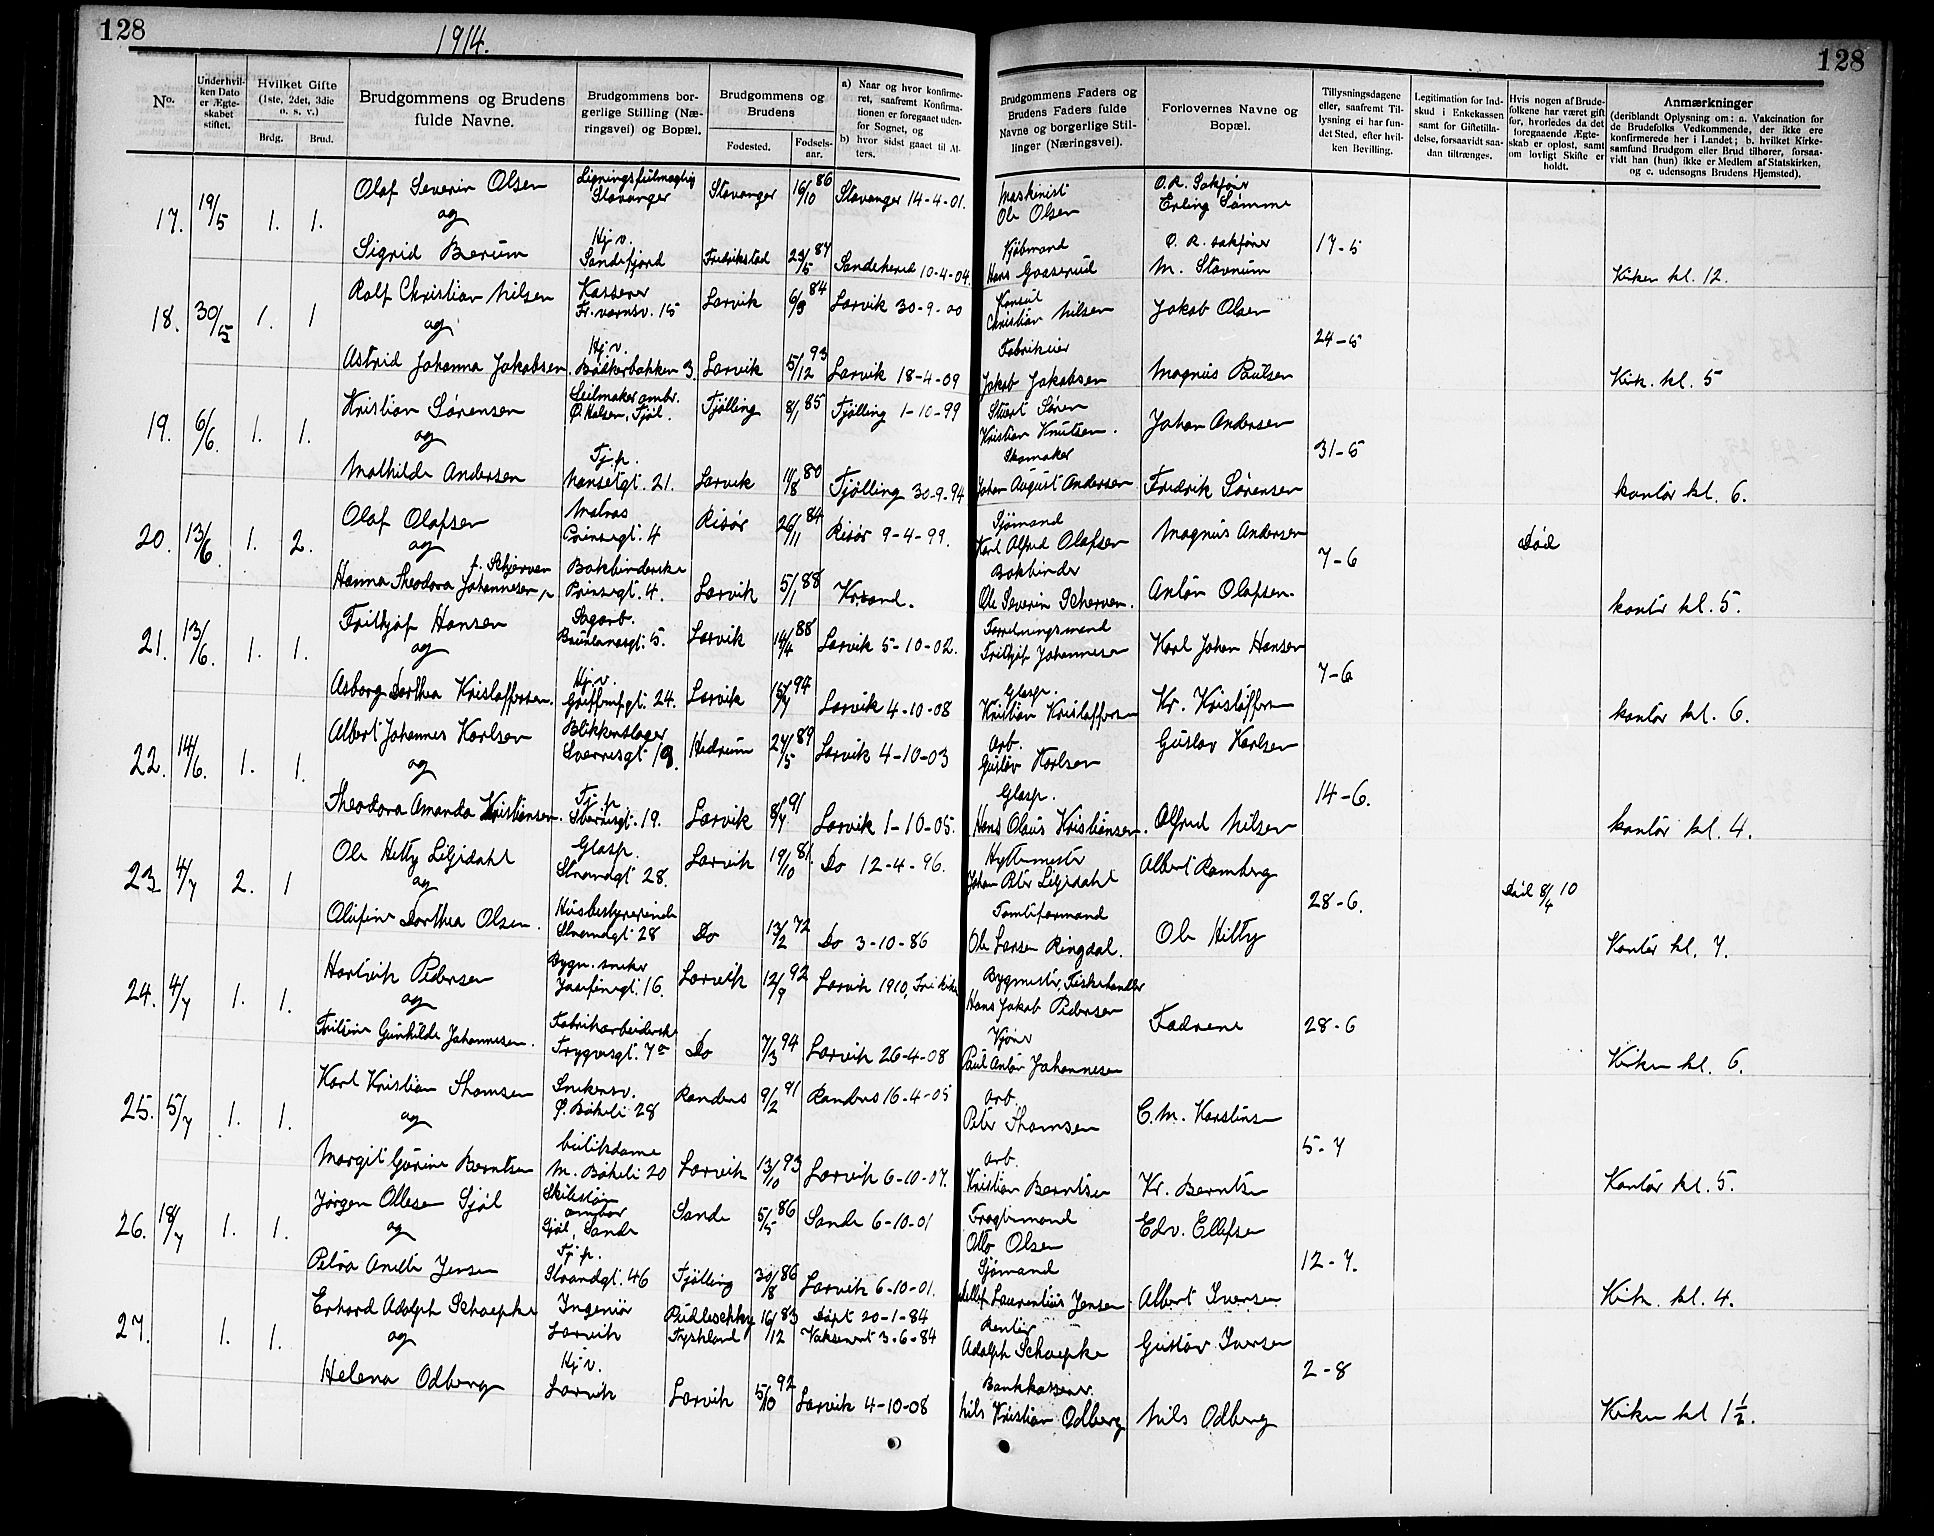 128
1914.
128
No.
Under hvilken Dato er Ægteskabet stiftet.
Hvilket Gifte (1ste, 2det, 3die o. s. v.)
Brdg.
Brud.
Brudgommens og Brudens fulde Navne.
Brudgommens borgerlige Stilling (Næringsvei) og Bopæl.
Brudgommens og Brudens
Fødested.
Fødselsaar.
a) Naar og hvor konfirmeret, saafremt Konfirmationen er foregaaet udenfor Sognet, og
b) hvor sidst gaaet til Alters.
Brudgommens Faders og Brudens Faders fulde Navne og borgerlige Stillinger (Næringsvei).
Forlovernes Navne og Bopæl.
Tillysningsdagene eller, saafremt Tillysning ei har fundet Sted, efter hvilken Bevilling.
Legitimation for Indskud i Enkekassen samt for Giftetilladelse, forsaavidt saadan tiltrænges.
Hvis nogen af Brudefolkene har været gift før, hvorledes da det foregaaende Ægteskab er opløst, samt om lovligt Skifte er holdt.
Anmærkninger
(deriblandt Oplysning om: a. Vakcination for de Brudefolks Vedkommende, der ikke ere konfirmerede her i Landet; b. hvilket Kirkesamfund Brudgom eller Brud tilhører, forsaavidt han (hun) ikke er Medlem af Statskirken, og c. udensogns Brudens Hjemsted).
17. 19/5 1. 1. Olaf Severin Olsen Stavanger Stavanger 16/10 86 Stavanger 14-4-01. Maskinist Ole Olsen O.R. Sakfører Erling Sømme
og
Sigrid Berum Hj.v. Sandefjord Fredrikstad 23/5 87 Sandeherred 10-4-04. Kjøbmand Hans O.R. sakfører M. Stavnum 17-5 Kirken kl. 12.
18. 30/5 1. 1 Rolf Christian Nilsen Kasserer Fr.vernsv. 15 Larvik 6/9 84 Larvik 30-9-00 Konsul Christian Nilsen Jakob Olsen
og
Astrid Johanna Jakobsen Hj.v. Bøkkerbakken 3. Larvik 5/12 93 Larvik 18-4-09 Fabrikeier Jakob Jakobsen Magnus Paulsen 24-5 Kirk. kl. 5
19. 6/6. 1. 1. Kristian Sørensen Seilmaker Ø. Halsen, Tjøl. Tjølling 8/1 85 Tjølling 1-10-99 Stuert Søren Kristian Knutsen. Johan Andersen
og
Mathilde Andersen Tj.p. Nansetgt. 21. Larvik 11/8 80 Tjølling 30-9-94 Skomaker Johan August Andersen Fredrik Sørensen 31-5 kontor kl. 6.
20. 13/6. 1. 2. Olaf Olafsen Matros Prinsegt. 4 Risør 26/11 84 Risør 9-4-99. Sjømand Karl Alfred Olafsen Magnus Andersen
og
Hanna Theodora Johannesen, f. Schjerven Bokbinderske Prinsegt. 4. Larvik 5/1 88 Krsand. Bokbinder Ole Severin Scherven. Anton Olafsen. 7-6 Død kontor kl. 5.
21. 13/6. 1. 1. Frithjof Hansen Sagarb. Larvik 14/4 88 Larvik 5-10-02. Forretningsmand Frithjof Johannesen Karl Johan Hansen
og
Asborg Dorthea Kristoffersen. Hj.v. 24. Larvik 94 Larvik 4-10-08 Glasp. Kristian Kristoffersen Kr. Kristoffersen 7-6 kontor kl. 6.
22. 14/6. 1. 1. Albert Johannes Karlsen Blikkenslager Sverresgt. 19. Hedrum 24/5 89 Larvik 4-10-03 Arb. Gustav Karlsen Gustav Karlsen
og
Theodora Amanda Kristiansen. Tj.p Sverresgt. 19. Larvik 8/7 91 Larvik 1-10-05. Glasp. Hans Olaus Kristiansen. Alfred Nilsen 14-6. kontor kl. 4.
23 4/7 2. 1 Ole Hetty Liljedahl Glasp. Strandgt. 28. Larvik 19/10 81. Do 12-4-96. Hyttemester Johan Peter Liljedahl Albert Ramberg
og
Olufine Dorthea Olsen. Husbestyrerinde Strandgt 28 Do 13/2 72 Do 3-10-86 Tomteformand Ole Larsen Ringdal. Ole Hetty 28-6. Død 8/4 10 Kontor kl. 7.
24. 4/7 1. 1. Hartvik Pedersen Bygn. sneker 16. Larvik 12/9 92 Larvik 1910, Frikirke Bygmester, Fiskehandler Hans Jakob Pedersen
og
Gunhilde Johannesen. Fabrikarbeiderske Trygvesgt. 7 Do 7/3 94 Larvik 26-4-08 Kjører Paul Anton Johannesen Fædrene 28-6 Kirken kl. 6.
25. 5/7 1. 1. Karl Kristian Thomsen Snekersv. Ø. Bøkeli 28 Randers 9/2 91 Randers 16-4-05 Arb. Peter Thomsen C.M. Karstensen
og
Margit Gurine Berntsen butikdame M. Bøkeli 20 Larvik 13/10 93 Larvik 6-10-07. Arb. Kristian Berntsen Kr. Berntsen 5-7 Kontor kl. 5.
26. 18/7 1. 1. Jørgen Ollesen Gjøl Gjøl, Sande Sande 5/5 86 Sande 6-10-01 Fragtemand Otto Olsen Edv. Ellefsen
og
Petra Anette Jensen Tj.p. Strandgt. 46 Tjølling 30/8 86 Larvik 6-10-01. Sjømand Laurentius Jensen. Albert Iversen 12-7. Kirk. kl. 4.
27. 1. 1. Erhard Adolph Schaepke Ingeniør Larvik Tyskland 16/12 83 Døpt 20-1-84 Vaksenert 3-6-84 Rentier Adolph Schaepke Gustav Iversen
og
Helena Odberg Hj.v. Larvik Larvik 5/10 92 Larvik 4-10-08 Bankkasserer. Nils Kristian Odberg Nils Odberg 2-8 Kirken kl 1½.